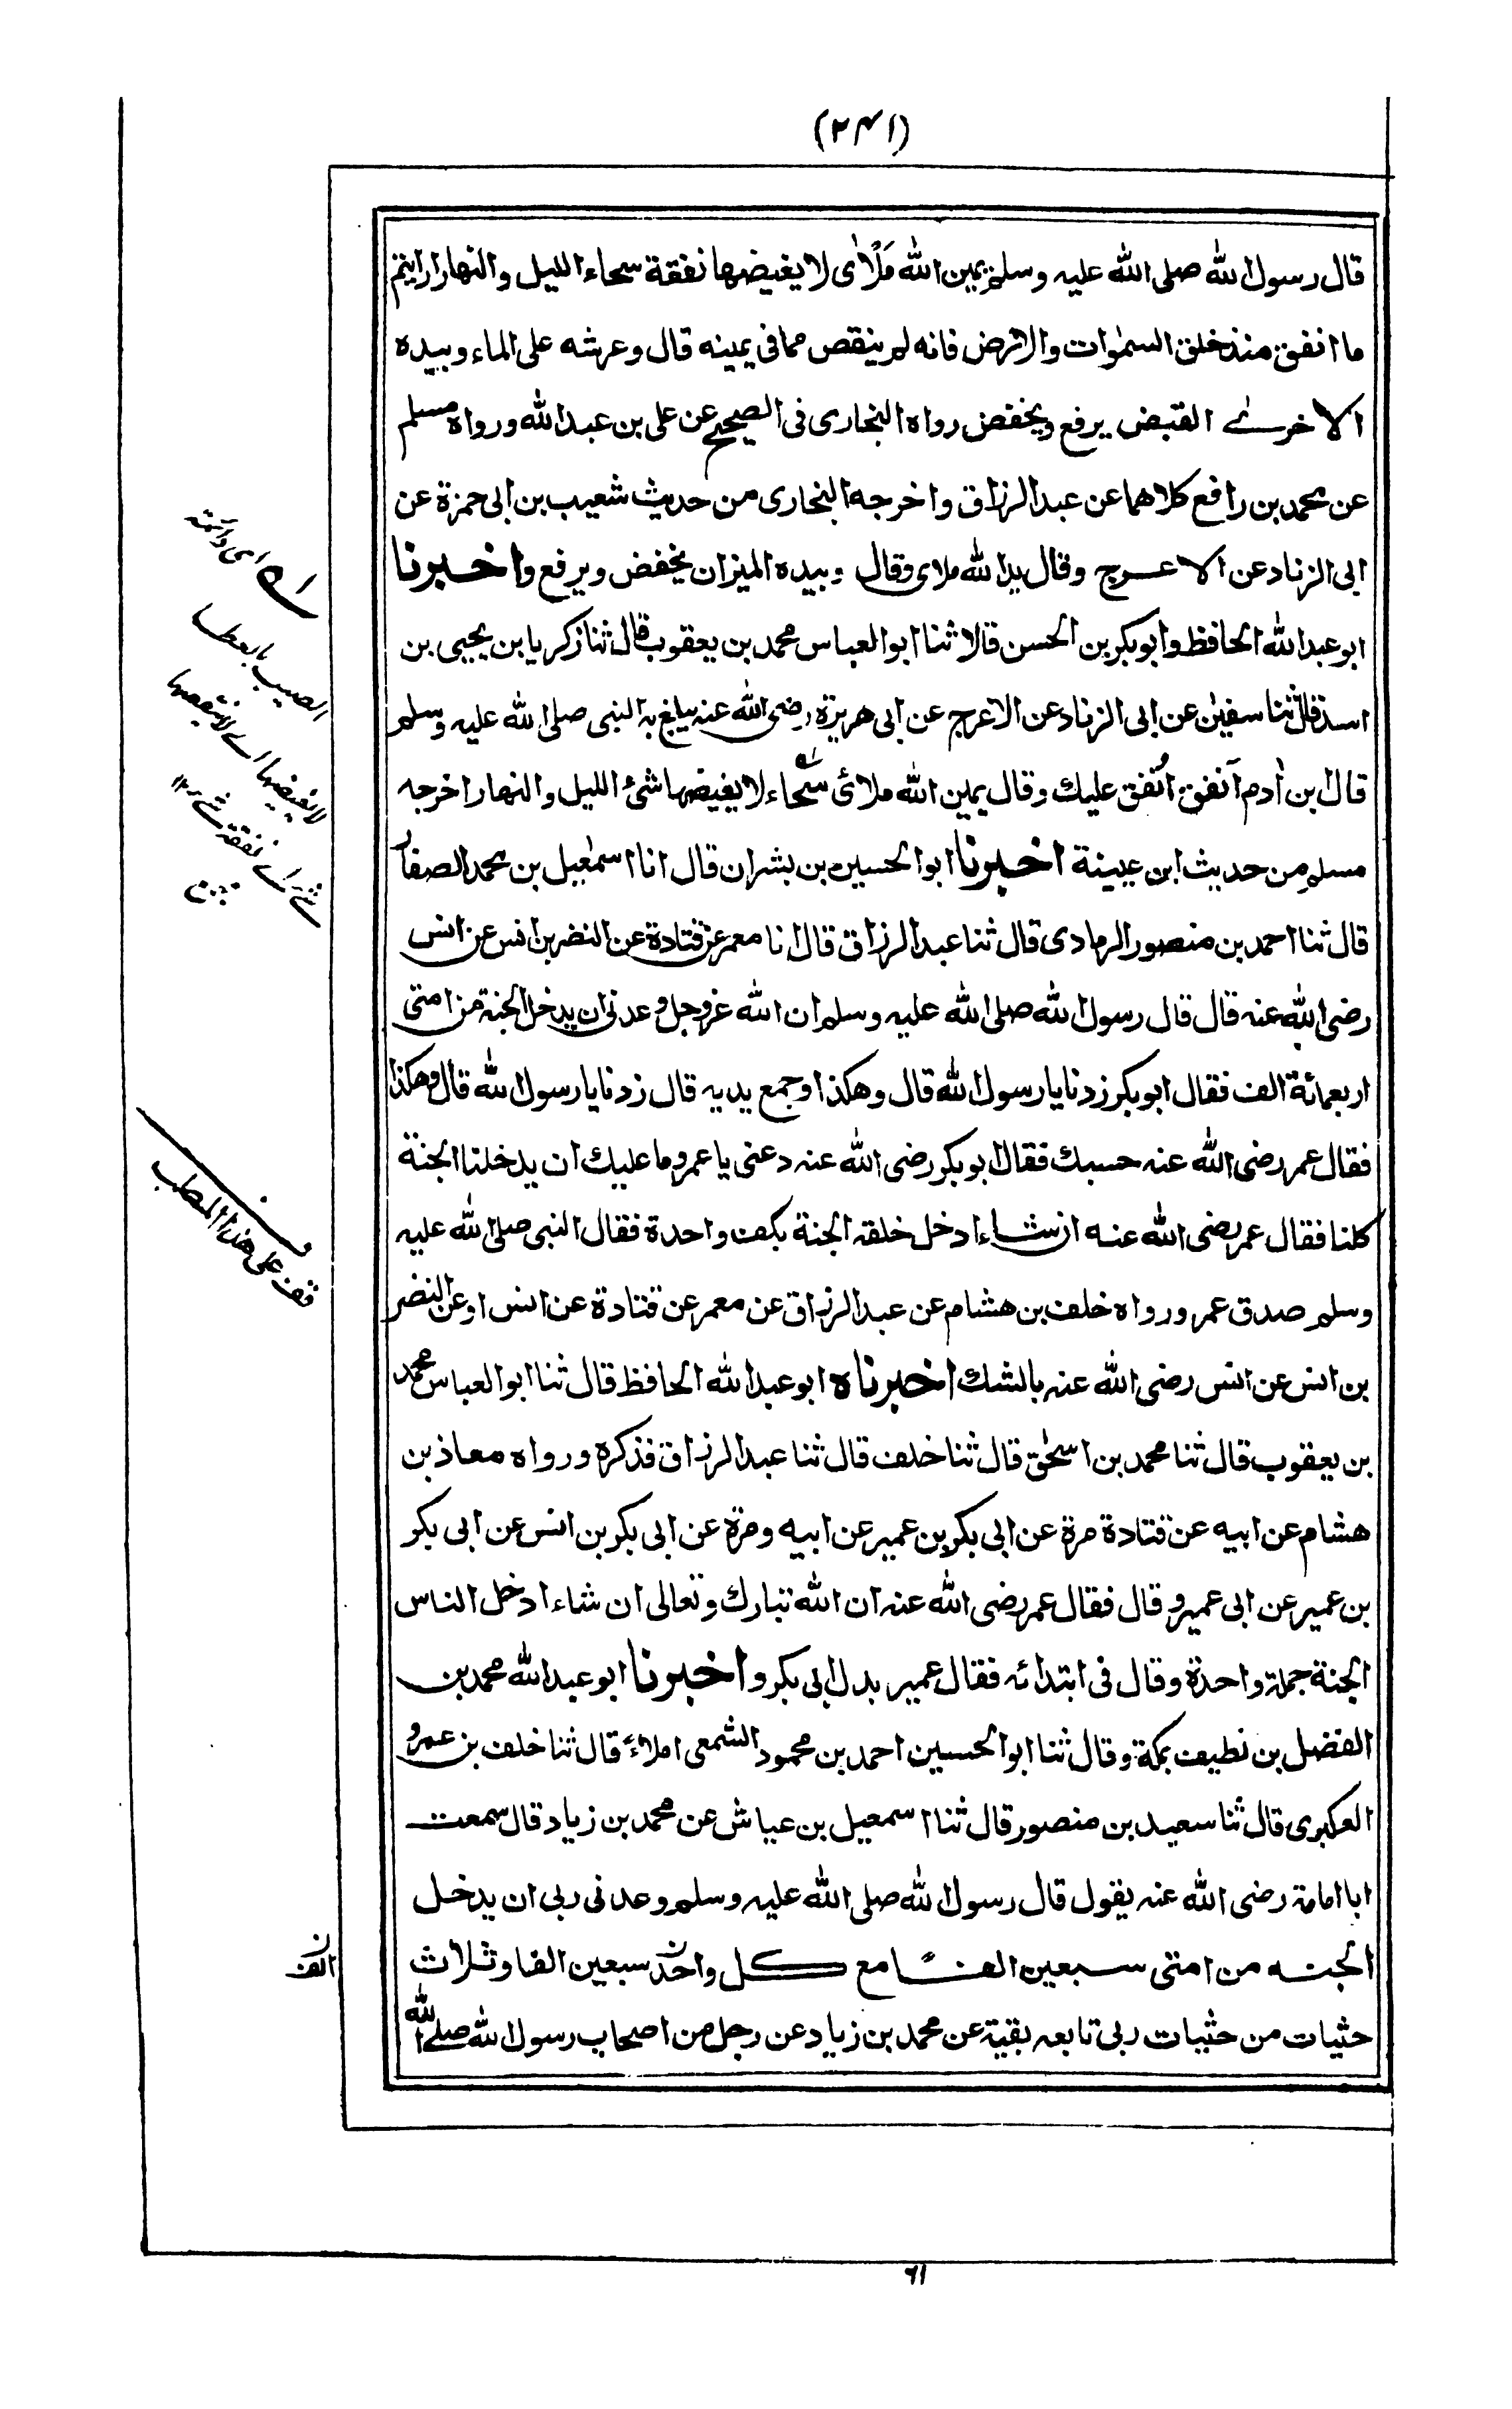 (٢٤١)
قال رسول الله صلى الله عليه وسلم يمين الله مَلْأى لا يغيضها نفقة سحاء الليل والنهار ارايتم
ما انفق منذ خلق السمٰوات والارض فانه لم ينقص مما فى يمينه قال وعرشه على الماء وبيده
الاخرى القبض يرفع ويخفض رواه البخارى فى الصحيح عن على بن عبد الله ورواه مسلم
عن محمد بن رافع كلاهما عن عبد الرزاق واخرجه البخارى من حديث شعيب بن ابى حمزة عن
ابى الزناد عن الاعرج وقال يد الله ملاى وقال وبيده الميزان يخفض ويرفع واخبرنا
ابو عبد الله الحافظ وابو بكر بن الحسن قالا ثنا ابو العباس محمد بن يعقوب قال ثنا زكريا بن يحيى بن
اسد قال ثنا سفين عن ابى الزناد عن الاعرج عن ابى هريرة رضى الله عنه يبلغ به النبى صلى الله عليه وسلم
قال ابن اٰدم اَنفق اُنفق عليك وقال يمين الله ملائ سَحّاء لا يغيضها شئ الليل والنهار اخرجه
مسلم من حديث ابن عيينة اخبرنا ابو الحسين بن بشران قال انا اسمٰعيل بن محمد الصفار
قال ثنا احمد بن منصور الرمادى قال ثنا عبد الرزاق قال انا معمر عن قتادة عن النضر بن انس عن انس
رضى الله عنه قال قال رسول الله صلى الله عليه وسلم ان الله عز وجل وعدنى ان يدخل الجنة من امتى
اربعمائة الف فقال ابو بكر زدنا يا رسول الله قال وهكذا وجمع يديه قال زدنا يا رسول الله قال وهكذا
فقال عمر رضى الله عنه حسبك فقال ابو بكر رضى الله عنه دعنى يا عمر وما عليك ان يدخلنا الجنة
كلنا فقال عمر رضى الله عنه ان شاء ادخل خلقه الجنة بكف واحدة فقال النبى صلى الله عليه
وسلم صدق عمر ورواه خلف بن هشام عن عبد الرزاق عن معمر عن قتادة عن انس او عن النضر
بن انس عن انس رضى الله عنه بالشك اخبرناه ابو عبد الله الحافظ قال ثنا ابو العباس محمد
بن يعقوب قال ثنا محمد بن اسحٰق قال ثنا خلف قال ثنا عبد الرزاق فذكره ورواه معاذ بن
هشام عن ابيه عن قتادة مرة عن ابى بكر بن عمير عن ابيه ومرة عن ابى بكر بن انس عن ابى بكر
بن عمير عن ابى عمير وقال فقال عمر رضى الله عنه ان الله تبارك وتعالى ان شاء ادخل الناس
الجنة جملة واحدة وقال فى ابتدائه فقال عمير بدل ابى بكر واخبرنا ابو عبد الله محمد بن
الفضل بن نظيف بمكة وقال ثنا ابو الحسين احمد بن محمود الشمعى املاءً قال ثنا خلف بن عمرو
العكبرى قال ثنا سعيد بن منصور قال ثنا اسمعيل بن عياش عن محمد بن زياد قال سمعت
ابا امامة رضى الله عنه يقول قال رسول الله صلى الله عليه وسلم وعدنى ربى ان يدخل
الجنه من امتى سبعين الفًا مع كل واحد سبعين الفا وثلاث
حثيات من حثيات ربى تابعه بقية عن محمد بن زياد عن رجل من اصحاب رسول الله صلى الله
اى دائمة
الصب بالعطا
لا يغيضها اے لا ينقصها
شئ اے نفقة
قف على هذا المطلب
الف
٦١